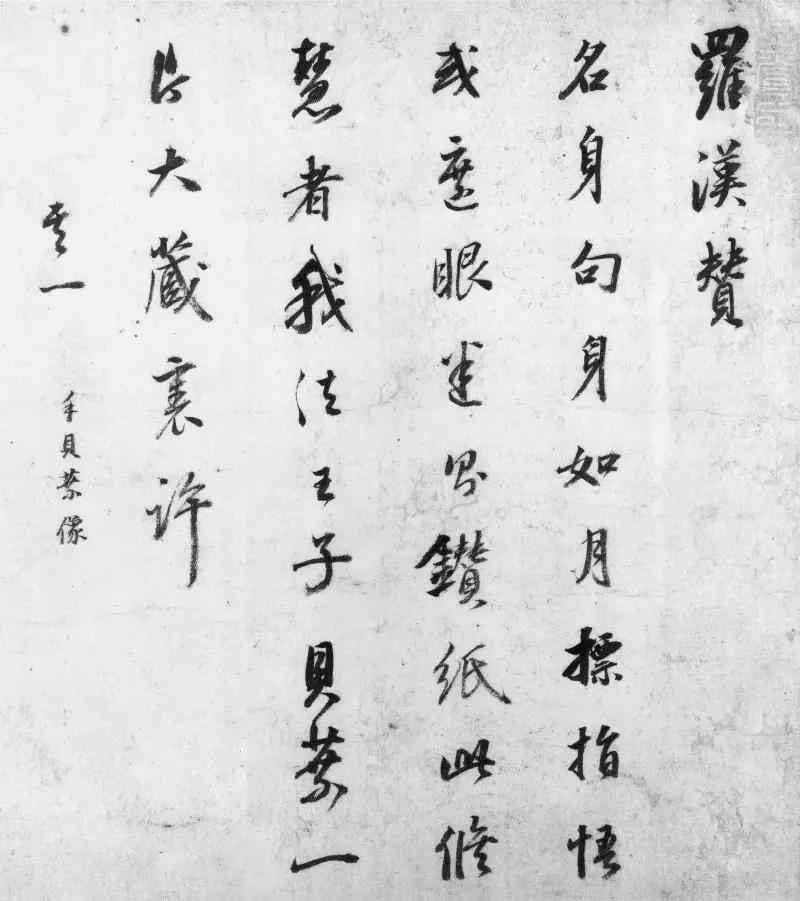 羅漢贊
名身句身如月摽指悟
或遮眼迷鑽紙此修
慧者我法王子貝葉一
片大藏裏許
其一 手貝葉像